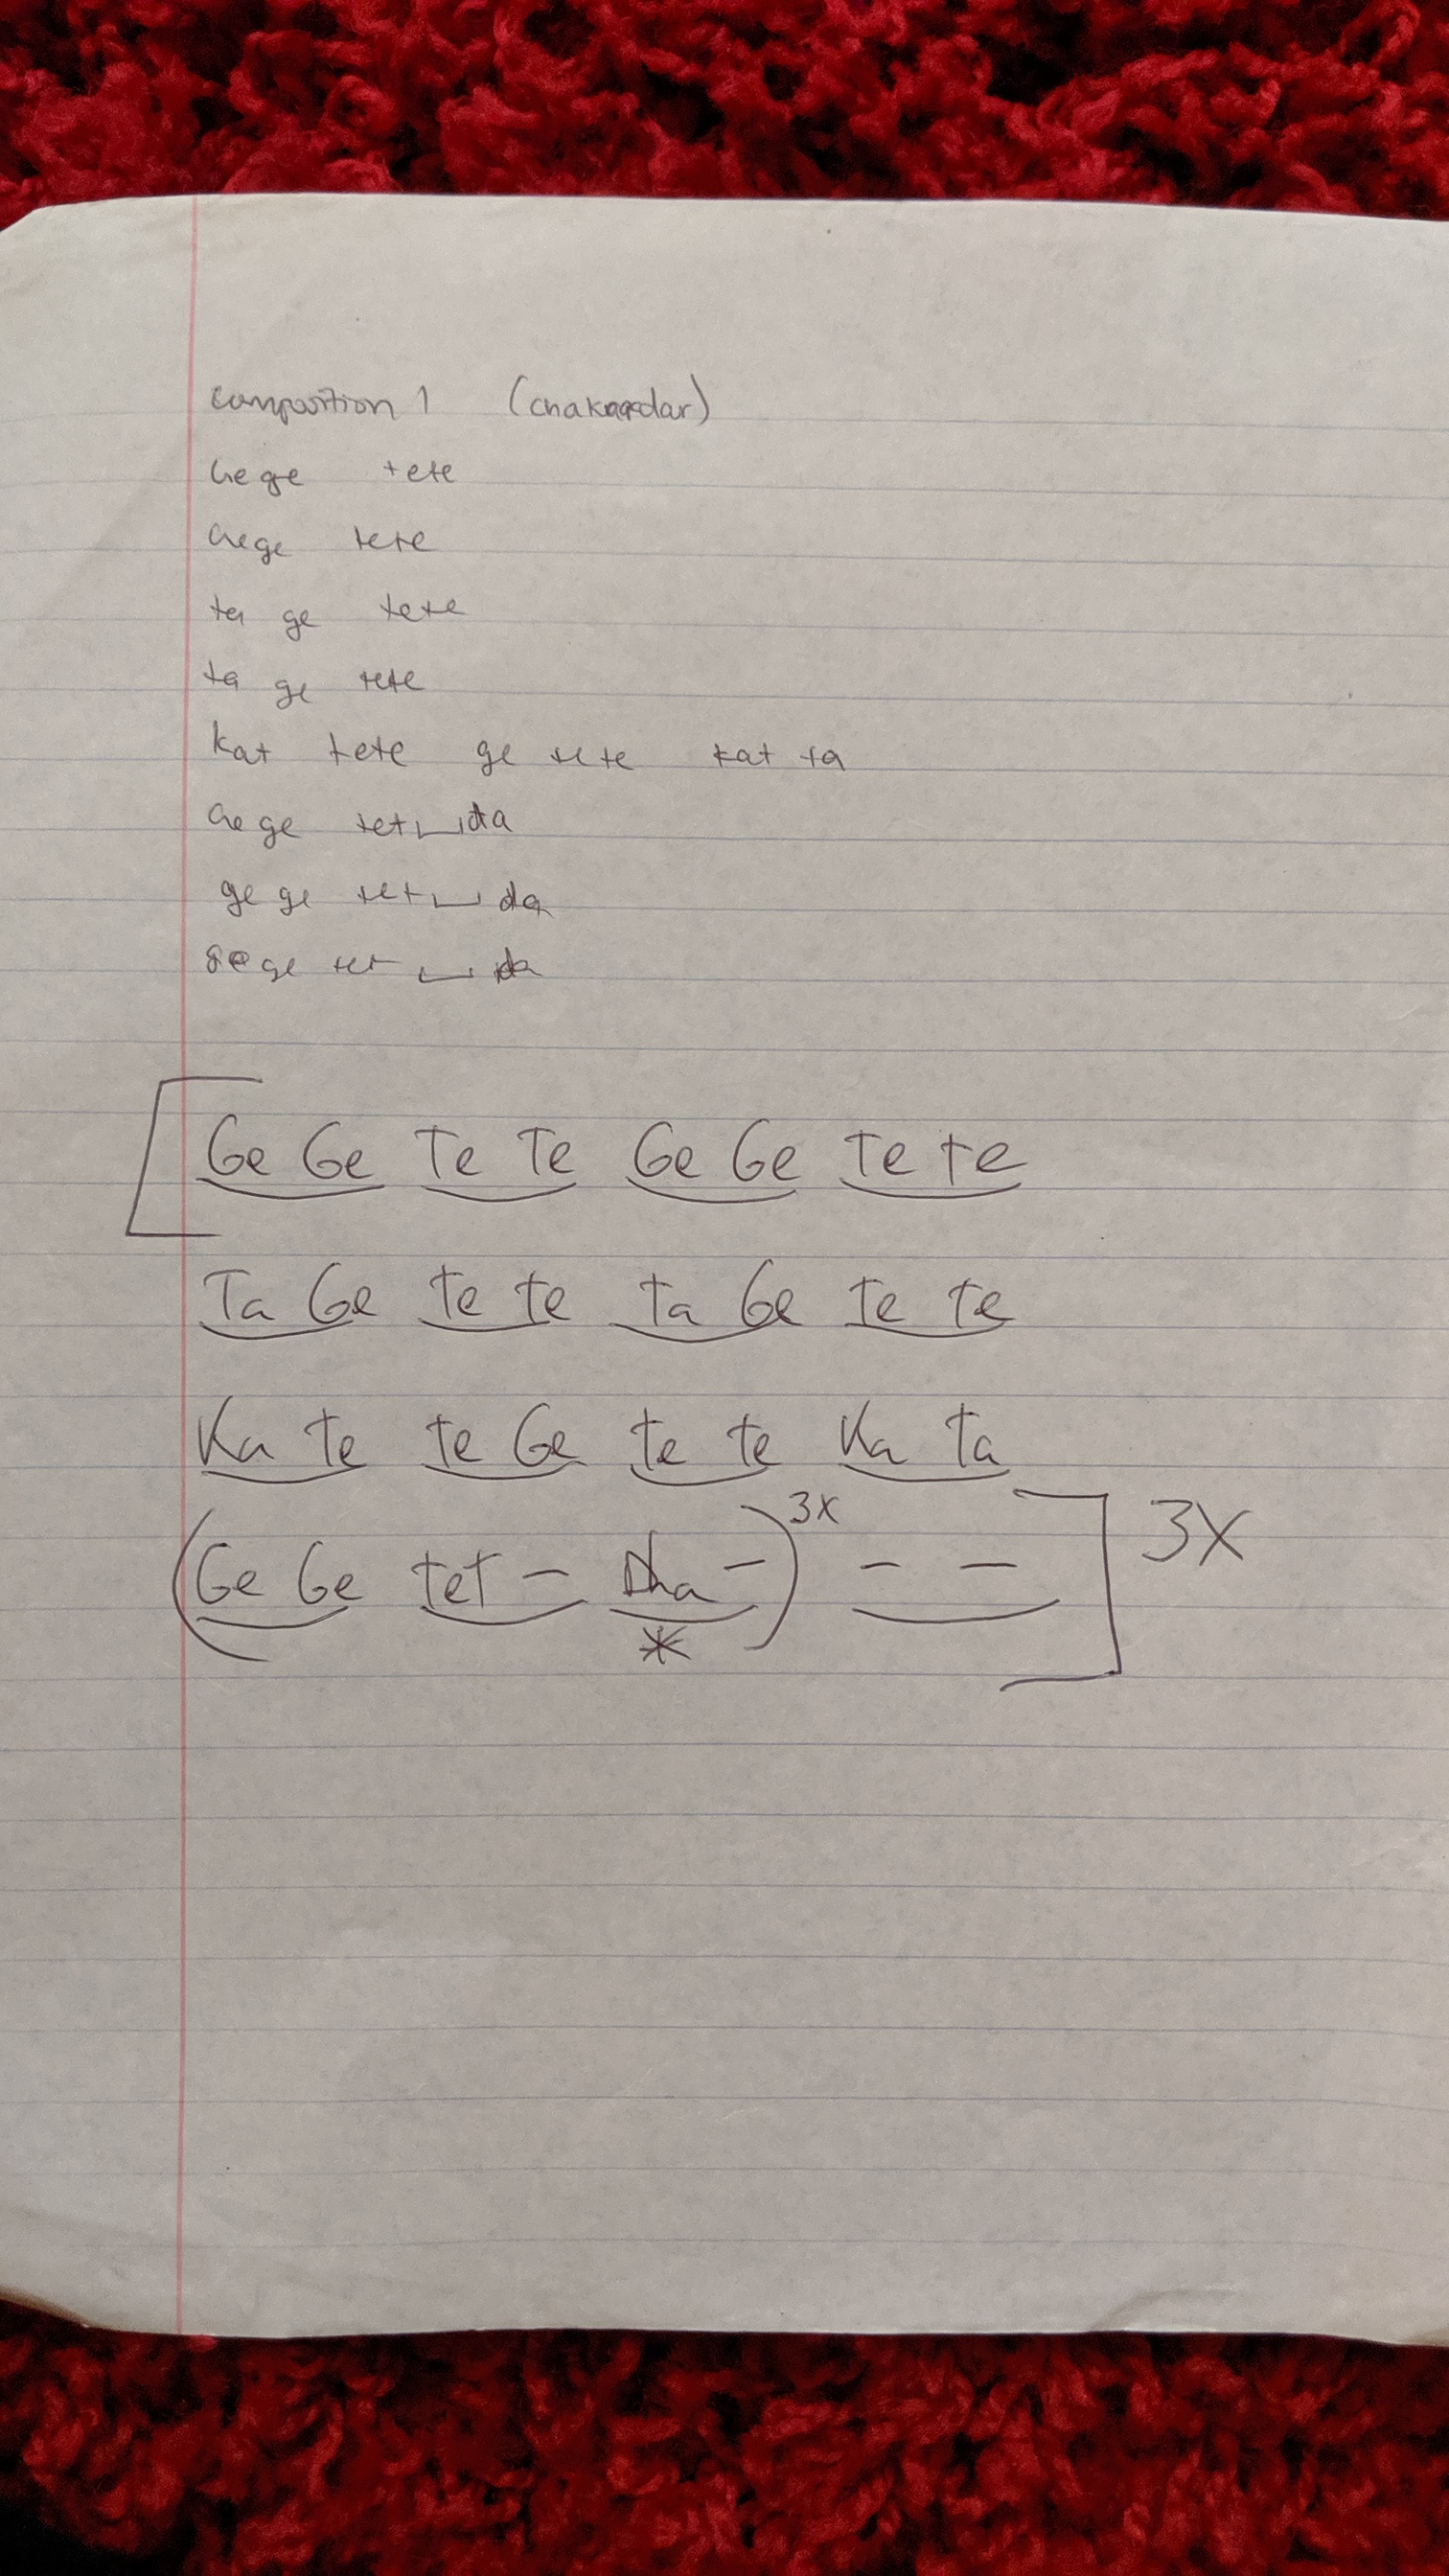 composition 1 (chakradar)
Gege tete
Gege tete
ta ge tete
ta ge tete
kat tete ge tete kat ta
Gege tet da
ge ge tet da
gege tet da
[Ge Ge Te Te Ge Ge Te te
Ta Ge te te ta Ge te te
Ka te te Ge te te Ka Ta
(Ge Ge tet - Dha -)3x - - ] 3X
*